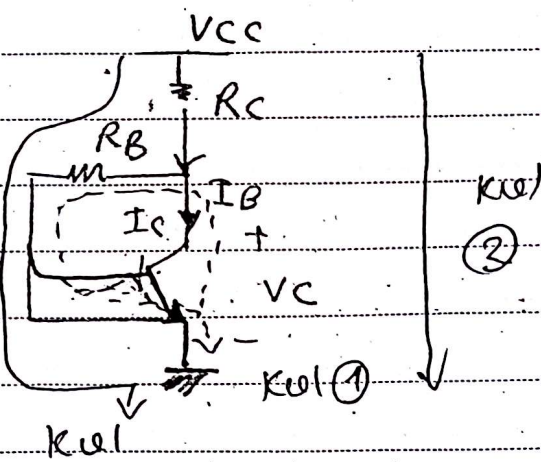 VCC
RC
RB
IB
IC
+
VC
-
KVL ①
KVL
②
KVL